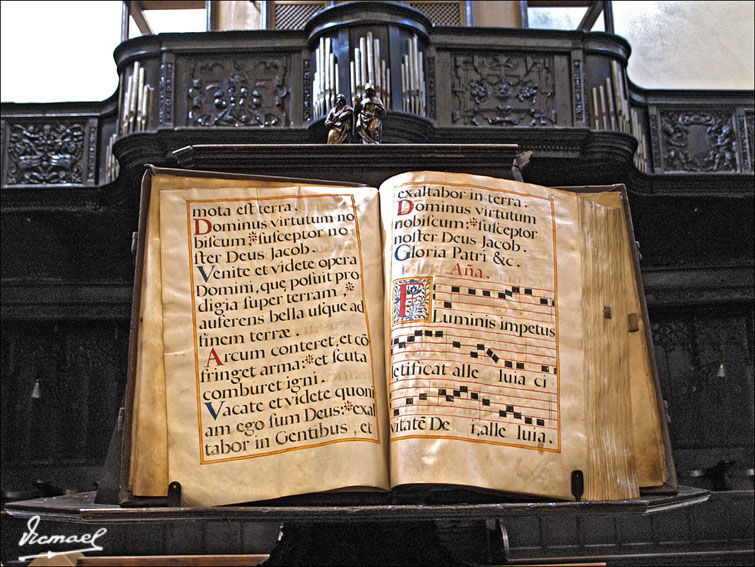 mota est terra.
Dominus virtutum no
biscum: susceptor no
ster Deus Jacob.
Venite et videte opera
Domini, que posuit pro
digia super terram,
auferens bella usque ad
finem terræ.
Arcum conteret, et cõ
fringet arma: et scuta
comburet igni.
Vacate et videte quoni
am ego sum Deus: exal
tabor in Gentibus, et
exaltabor in terra.
Dominus virtutum
nobiscum: susceptor
noster Deus Jacob.
Gloria Patri &c.
Aña.
F
Luminis impetus
lętificat alle luia ci
vitatẽ De i, alle luia.
Vicmael